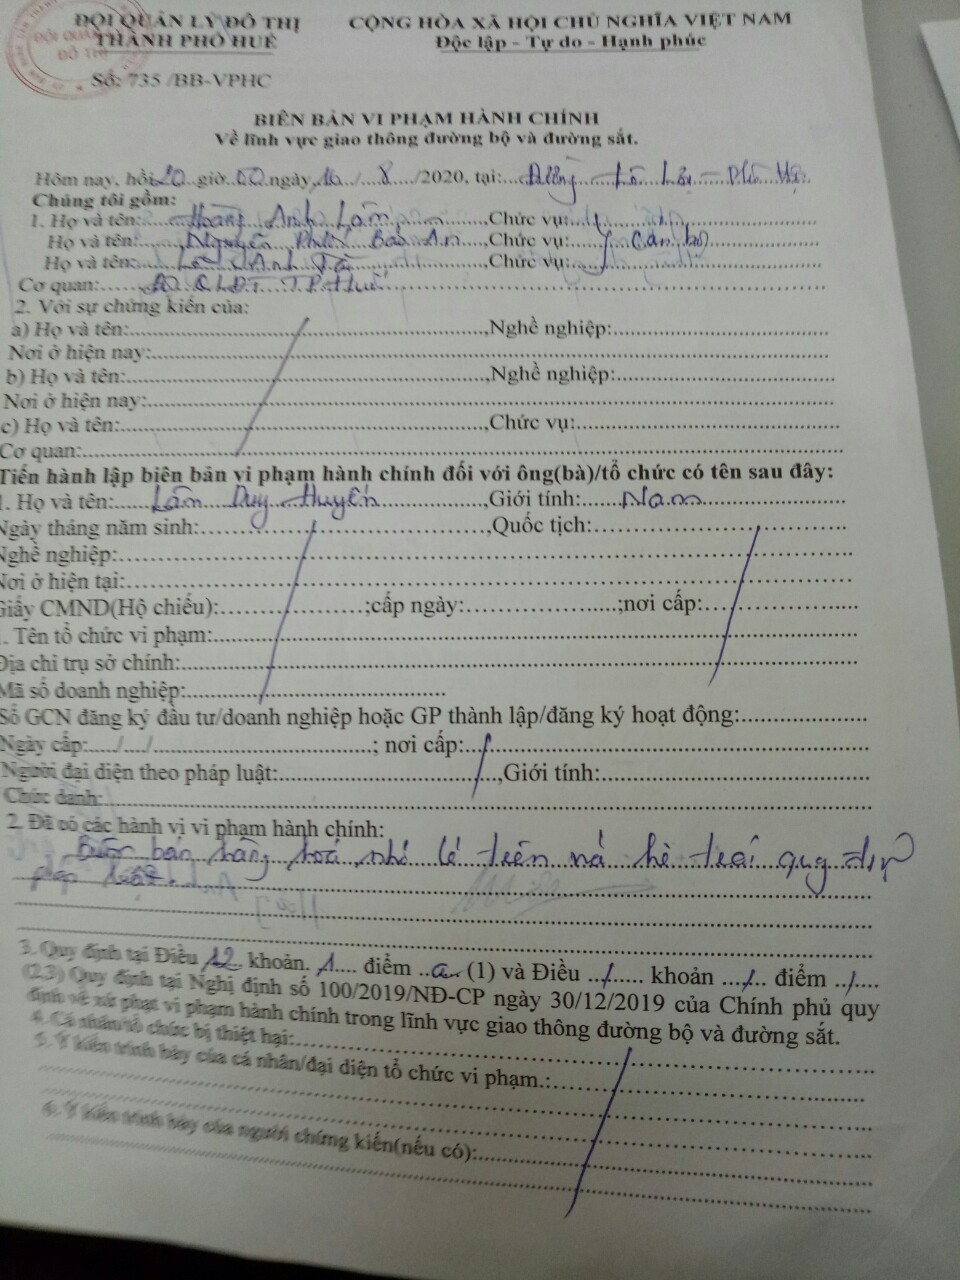 ĐỘI QUẢN LÝ ĐÔ THỊ
THÀNH PHỐ HUẾ
CỘNG HÒA XÃ HỘI CHỦ NGHĨA VIỆT NAM
Độc lập - Tự do - Hạnh phúc
Số: 735 /BB-VPHC
BIÊN BẢN VI PHẠM HÀNH CHÍNH
Về lĩnh vực giao thông đường bộ và đường sắt.
Hôm nay, hồi 20 giờ 00 ngày 16 / 8 /2020, tại: Đường Lê Lợi
Chúng tôi gồm:
1. Họ và tên: Hoàng Anh Lâm ,Chức vụ:
Họ và tên: Nguyễn Phước Bảo An ,Chức vụ: Cán bộ
Họ và tên: Anh ,Chức vụ:
Cơ quan: Đ. QLĐT TP Huế
2. Với sự chứng kiến của:
a) Họ và tên: ,Nghề nghiệp:
Nơi ở hiện nay:
b) Họ và tên: ,Nghề nghiệp:
Nơi ở hiện nay:
c) Họ và tên: ,Chức vụ:
Cơ quan:
Tiến hành lập biên bản vi phạm hành chính đối với ông(bà)/tổ chức có tên sau đây:
1. Họ và tên: Lâm Duy Huyến ,Giới tính: Nam
Ngày tháng năm sinh: ,Quốc tịch:
Nghề nghiệp:
Nơi ở hiện tại:
Giấy CMND(Hộ chiếu): ;cấp ngày: ;nơi cấp:
1. Tên tổ chức vi phạm:
Địa chỉ trụ sở chính:
Mã số doanh nghiệp:
Số GCN đăng ký đầu tư/doanh nghiệp hoặc GP thành lập/đăng ký hoạt động:
Ngày cấp: / / ; nơi cấp:
Người đại diện theo pháp luật: ,Giới tính:
Chức danh:
2. Đã có các hành vi vi phạm hành chính:
Buôn bán hàng hoá nhỏ lẻ trên vỉa hè trái quy định
pháp luật
3. Quy định tại Điều 12 khoản 1 điểm a (1) và Điều / khoản / điểm /
(2,3) Quy định tại Nghị định số 100/2019/NĐ-CP ngày 30/12/2019 của Chính phủ quy
định về xử phạt vi phạm hành chính trong lĩnh vực giao thông đường bộ và đường sắt.
4. Cá nhân/tổ chức bị thiệt hại:
5. Ý kiến trình bày của cá nhân/đại diện tổ chức vi phạm.:
6. Ý kiến trình bày của người chứng kiến(nếu có):